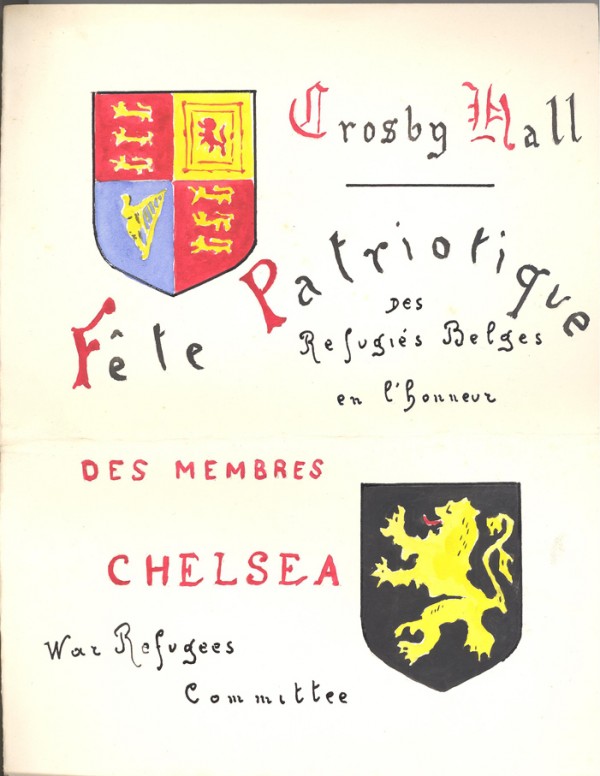 Crosby Hall
Fête Patriotique
Des
Refugiés Belges
en l'honneur
DES MEMBRES
CHELSEA
War Refugees
Committee